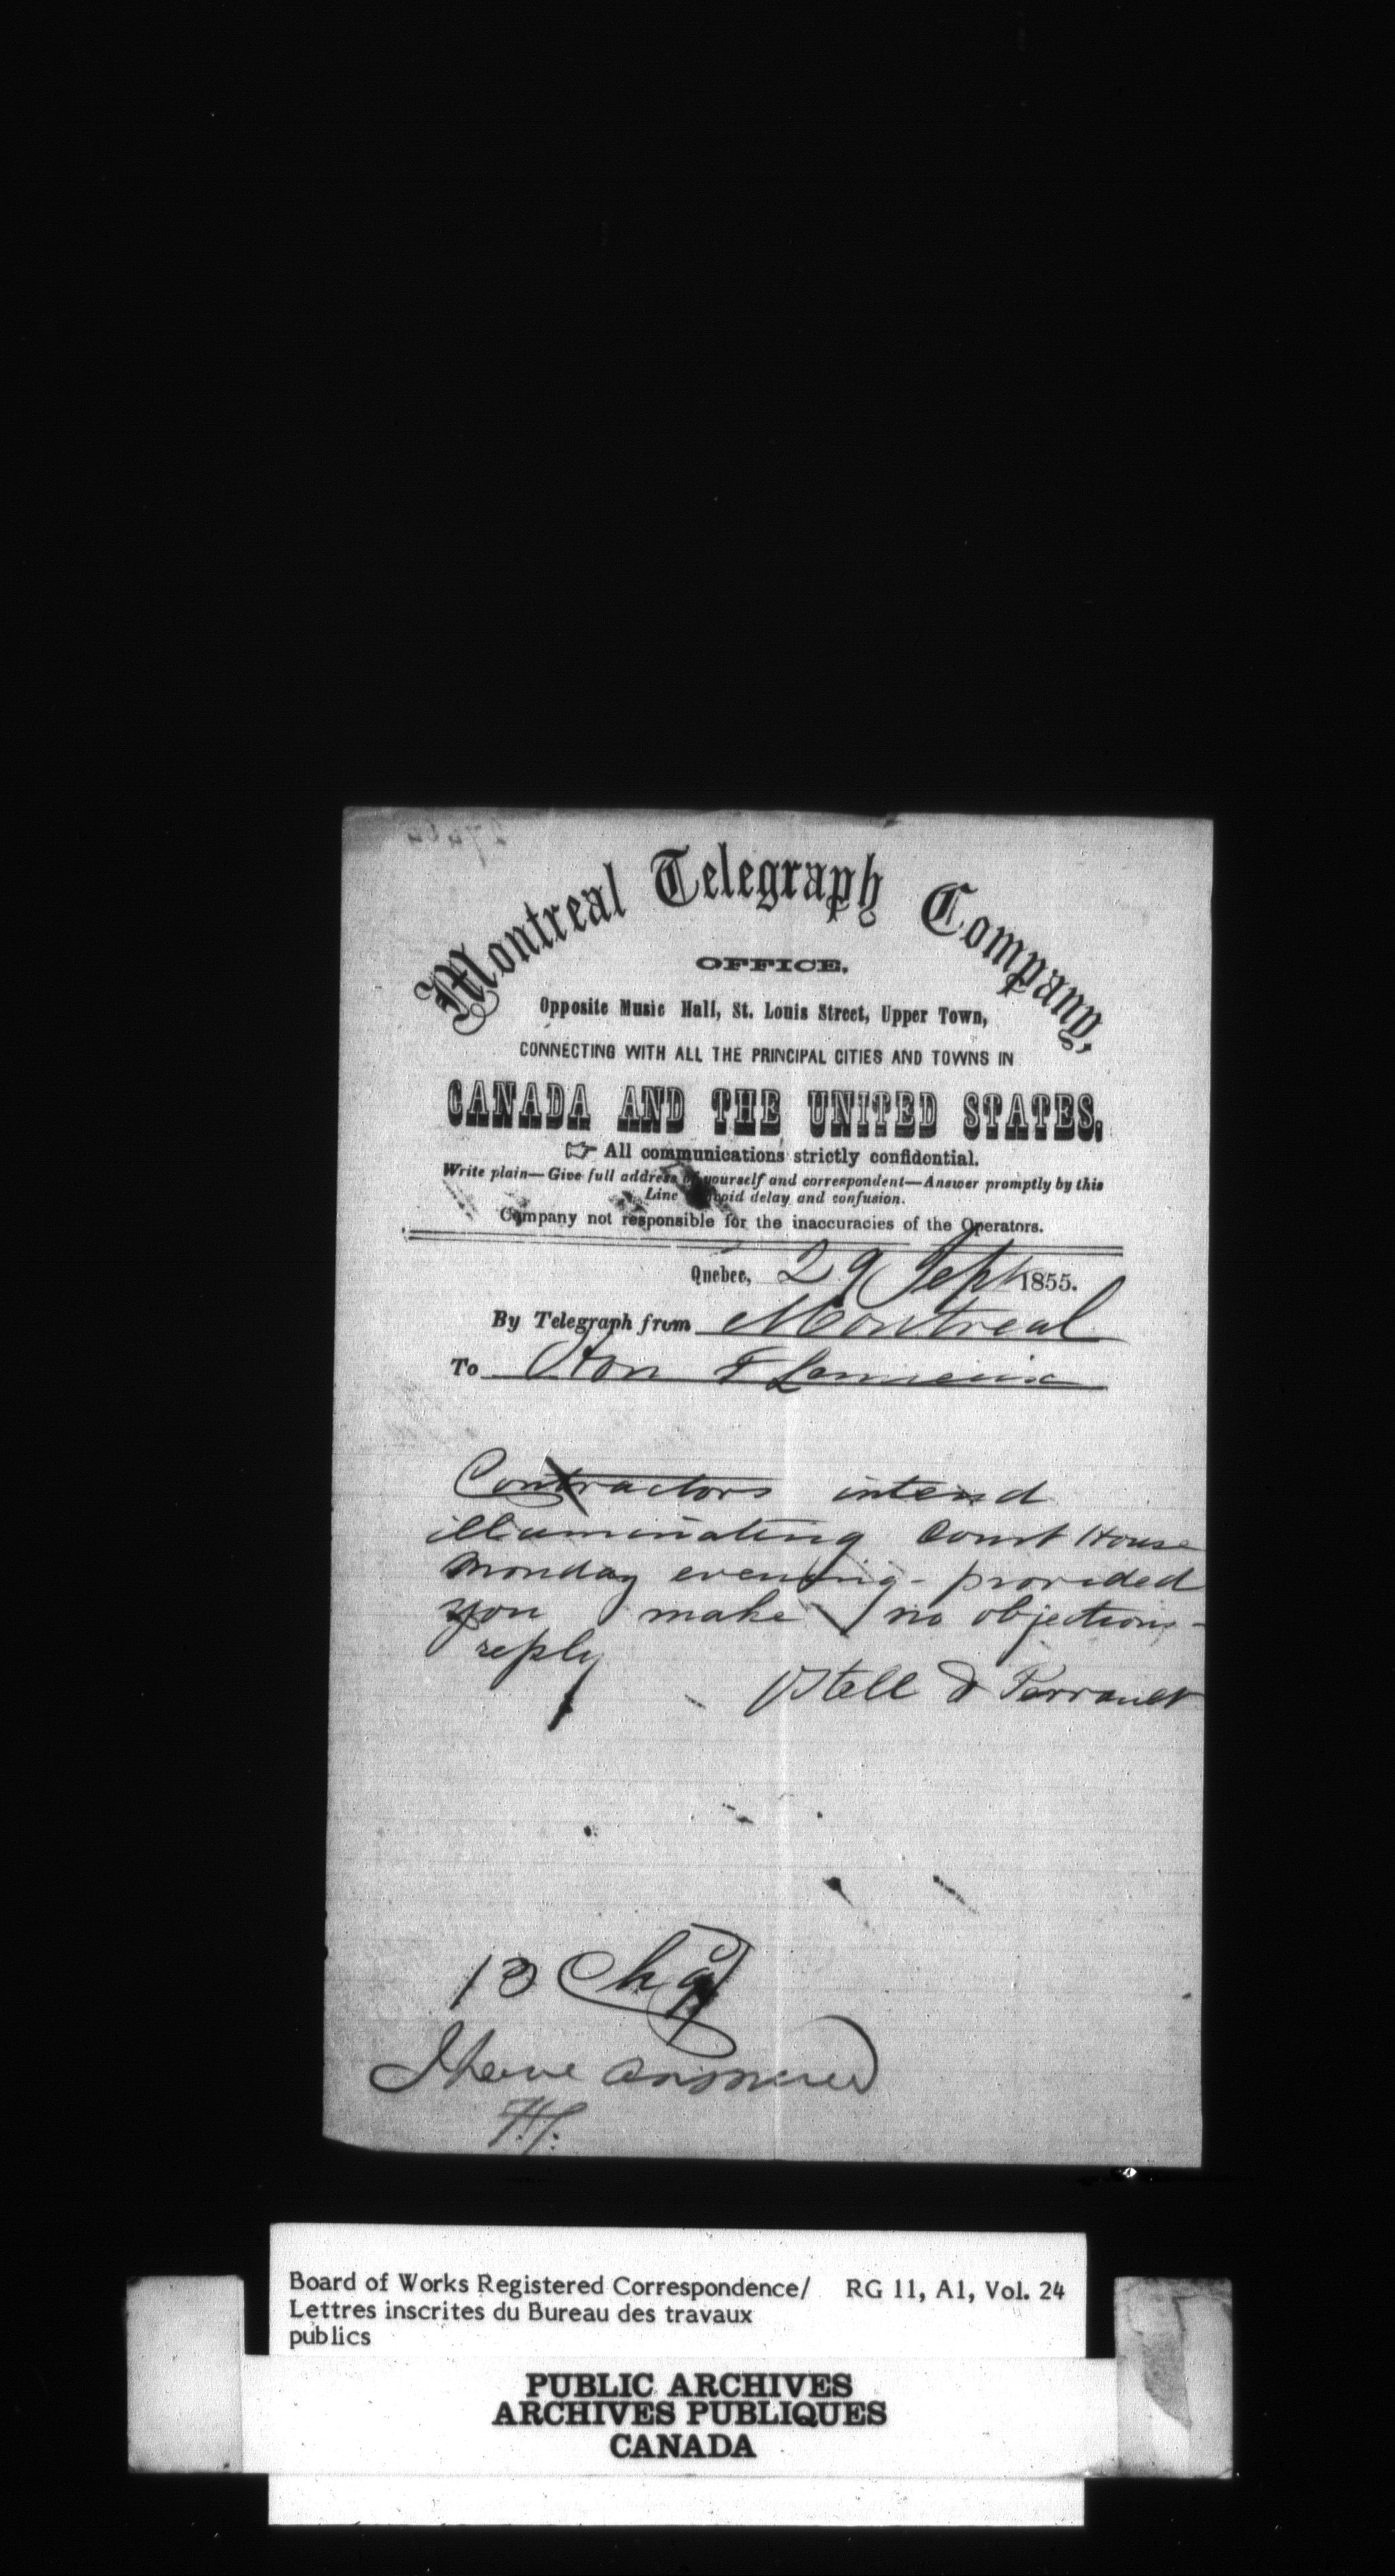 Montreal Telegraph Company,
OFFICE,
Opposite Music Hall, St. Louis Street, Upper Town,
CONNECTING WITH ALL THE PRINCIPAL CITIES AND TOWNS IN
CANADA AND THE UNITED STATES.
☞ All communications strictly confidential.
Write plain—Give full address of yourself and correspondent—Answer promptly by this
Line avoid delay and confusion.
Company not responsible for the inaccuracies of the Operators.
Quebec, 29 Sept 1855.
By Telegraph from Montreal
To Hon F Lemieux
Contractors intend
illuminating Court House
monday evening - provided
you make no objections -
reply
Ostell & Perrault
13 Chg
I have answered
Board of Works Registered Correspondence/ RG 11, A1, Vol. 24
Lettres inscrites du Bureau des travaux
publics
PUBLIC ARCHIVES
ARCHIVES PUBLIQUES
CANADA